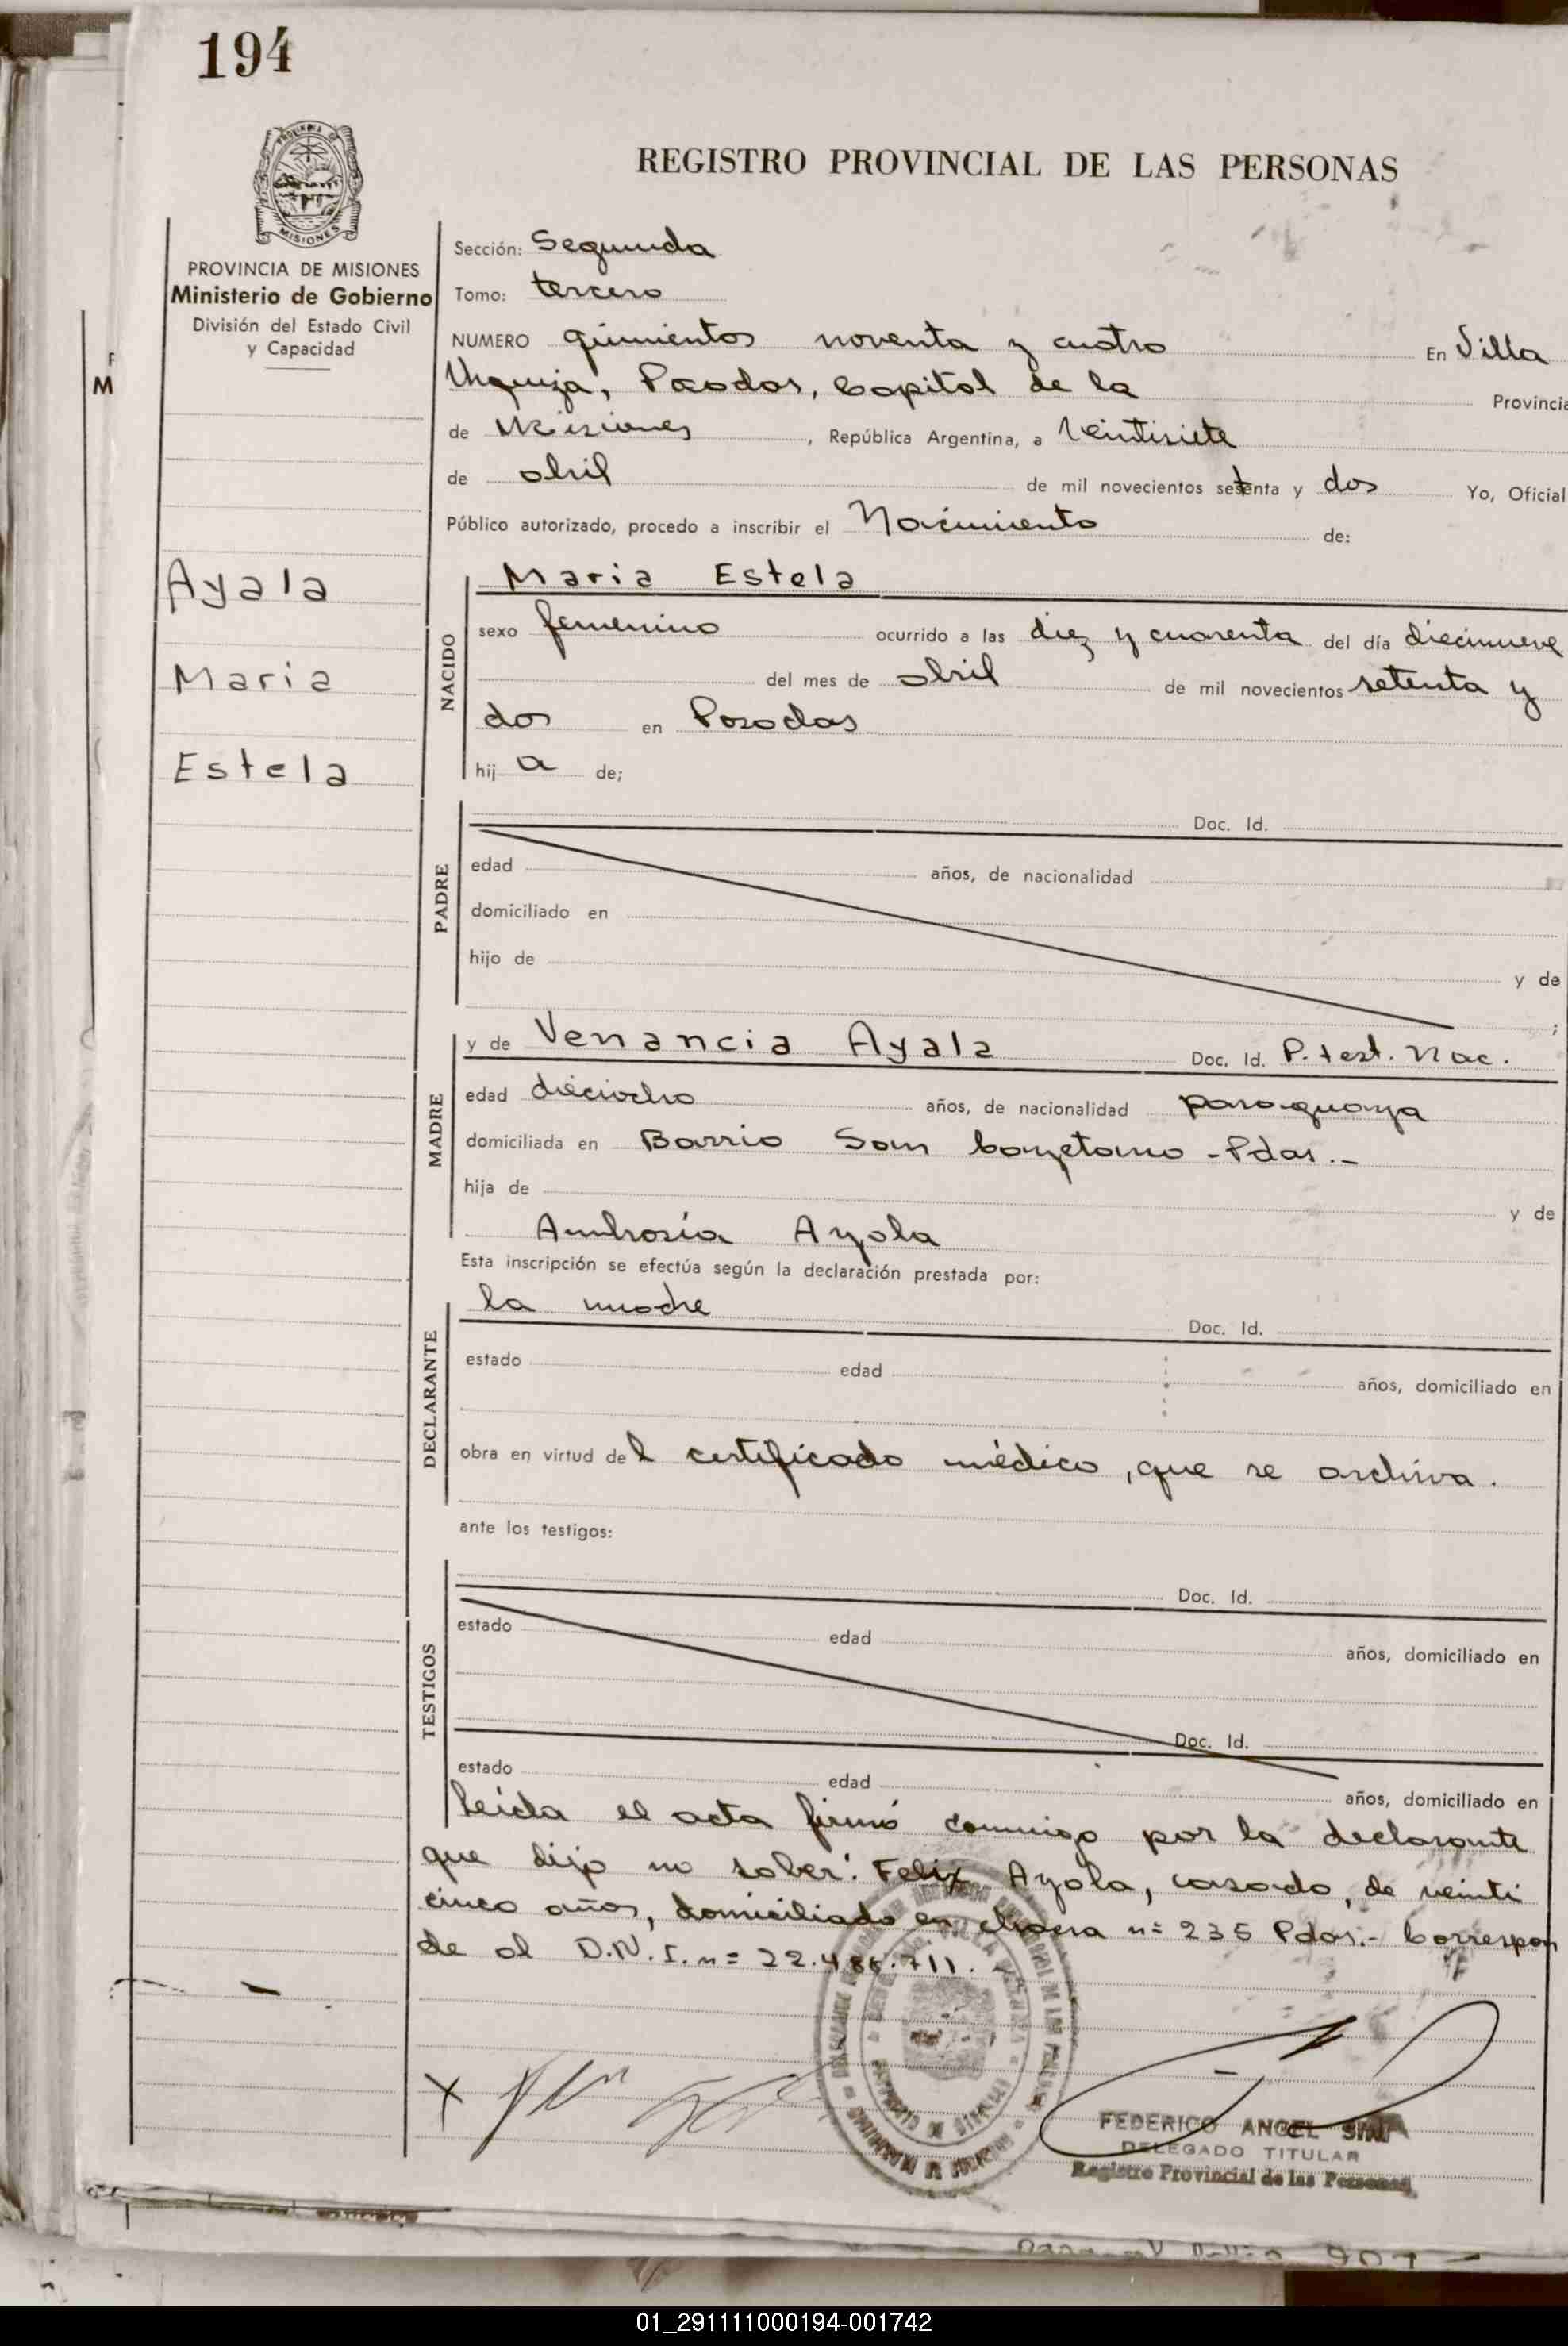 194
PROVINCIA DE MISIONES
MISIONES
REGISTRO PROVINCIAL DE LAS PERSONAS
PROVINCIA DE MISIONES
Ministerio de Gobierno
División del Estado Civil
y Capacidad
F
M
Sección: Segunda
Tomo: tercero
NUMERO quinientos noventa y cuatro En Villa
Urquiza, Posadas, Capital de la Provincia
de Misiones, República Argentina, a veintisiete
de abril de mil novecientos setenta y dos Yo, Oficial
Público autorizado, procedo a inscribir el Nacimiento de:
Ayala
Maria
Estela
NACIDO
Maria Estela
sexo femenino ocurrido a las diez y cuarenta del día diecinueve
del mes de abril de mil novecientos setenta y
dos en Posadas
hij a de;
PADRE
Doc. Id.
edad años, de nacionalidad
domiciliado en
hijo de y de
;
MADRE
y de Venancia Ayala Doc. Id. P. test. Nac.
edad dieciocho años, de nacionalidad paraguaya
domiciliada en Barrio San Cayetano - Pdas.-
hija de y de
Ambrosia Ayala
Esta inscripción se efectúa según la declaración prestada por:
DECLARANTE
la madre
Doc. Id.
estado edad años, domiciliado en
obra en virtud del certificado médico, que se archiva.
ante los testigos:
TESTIGOS
Doc. Id.
estado edad años, domiciliado en
Doc. Id.
estado edad años, domiciliado en
Leída el acta firmó conmigo por la declarante
que dijo no saber: Felix Ayala, casado, de veinti
cinco años, domiciliado en chacra n= 235 Pdas.- Correspon
de al D.N.I. n= 22.486.711.
X
FEDERICO ANGEL
DELEGADO TITULAR
Registro Provincial de las Personas
01_291111000194-001742